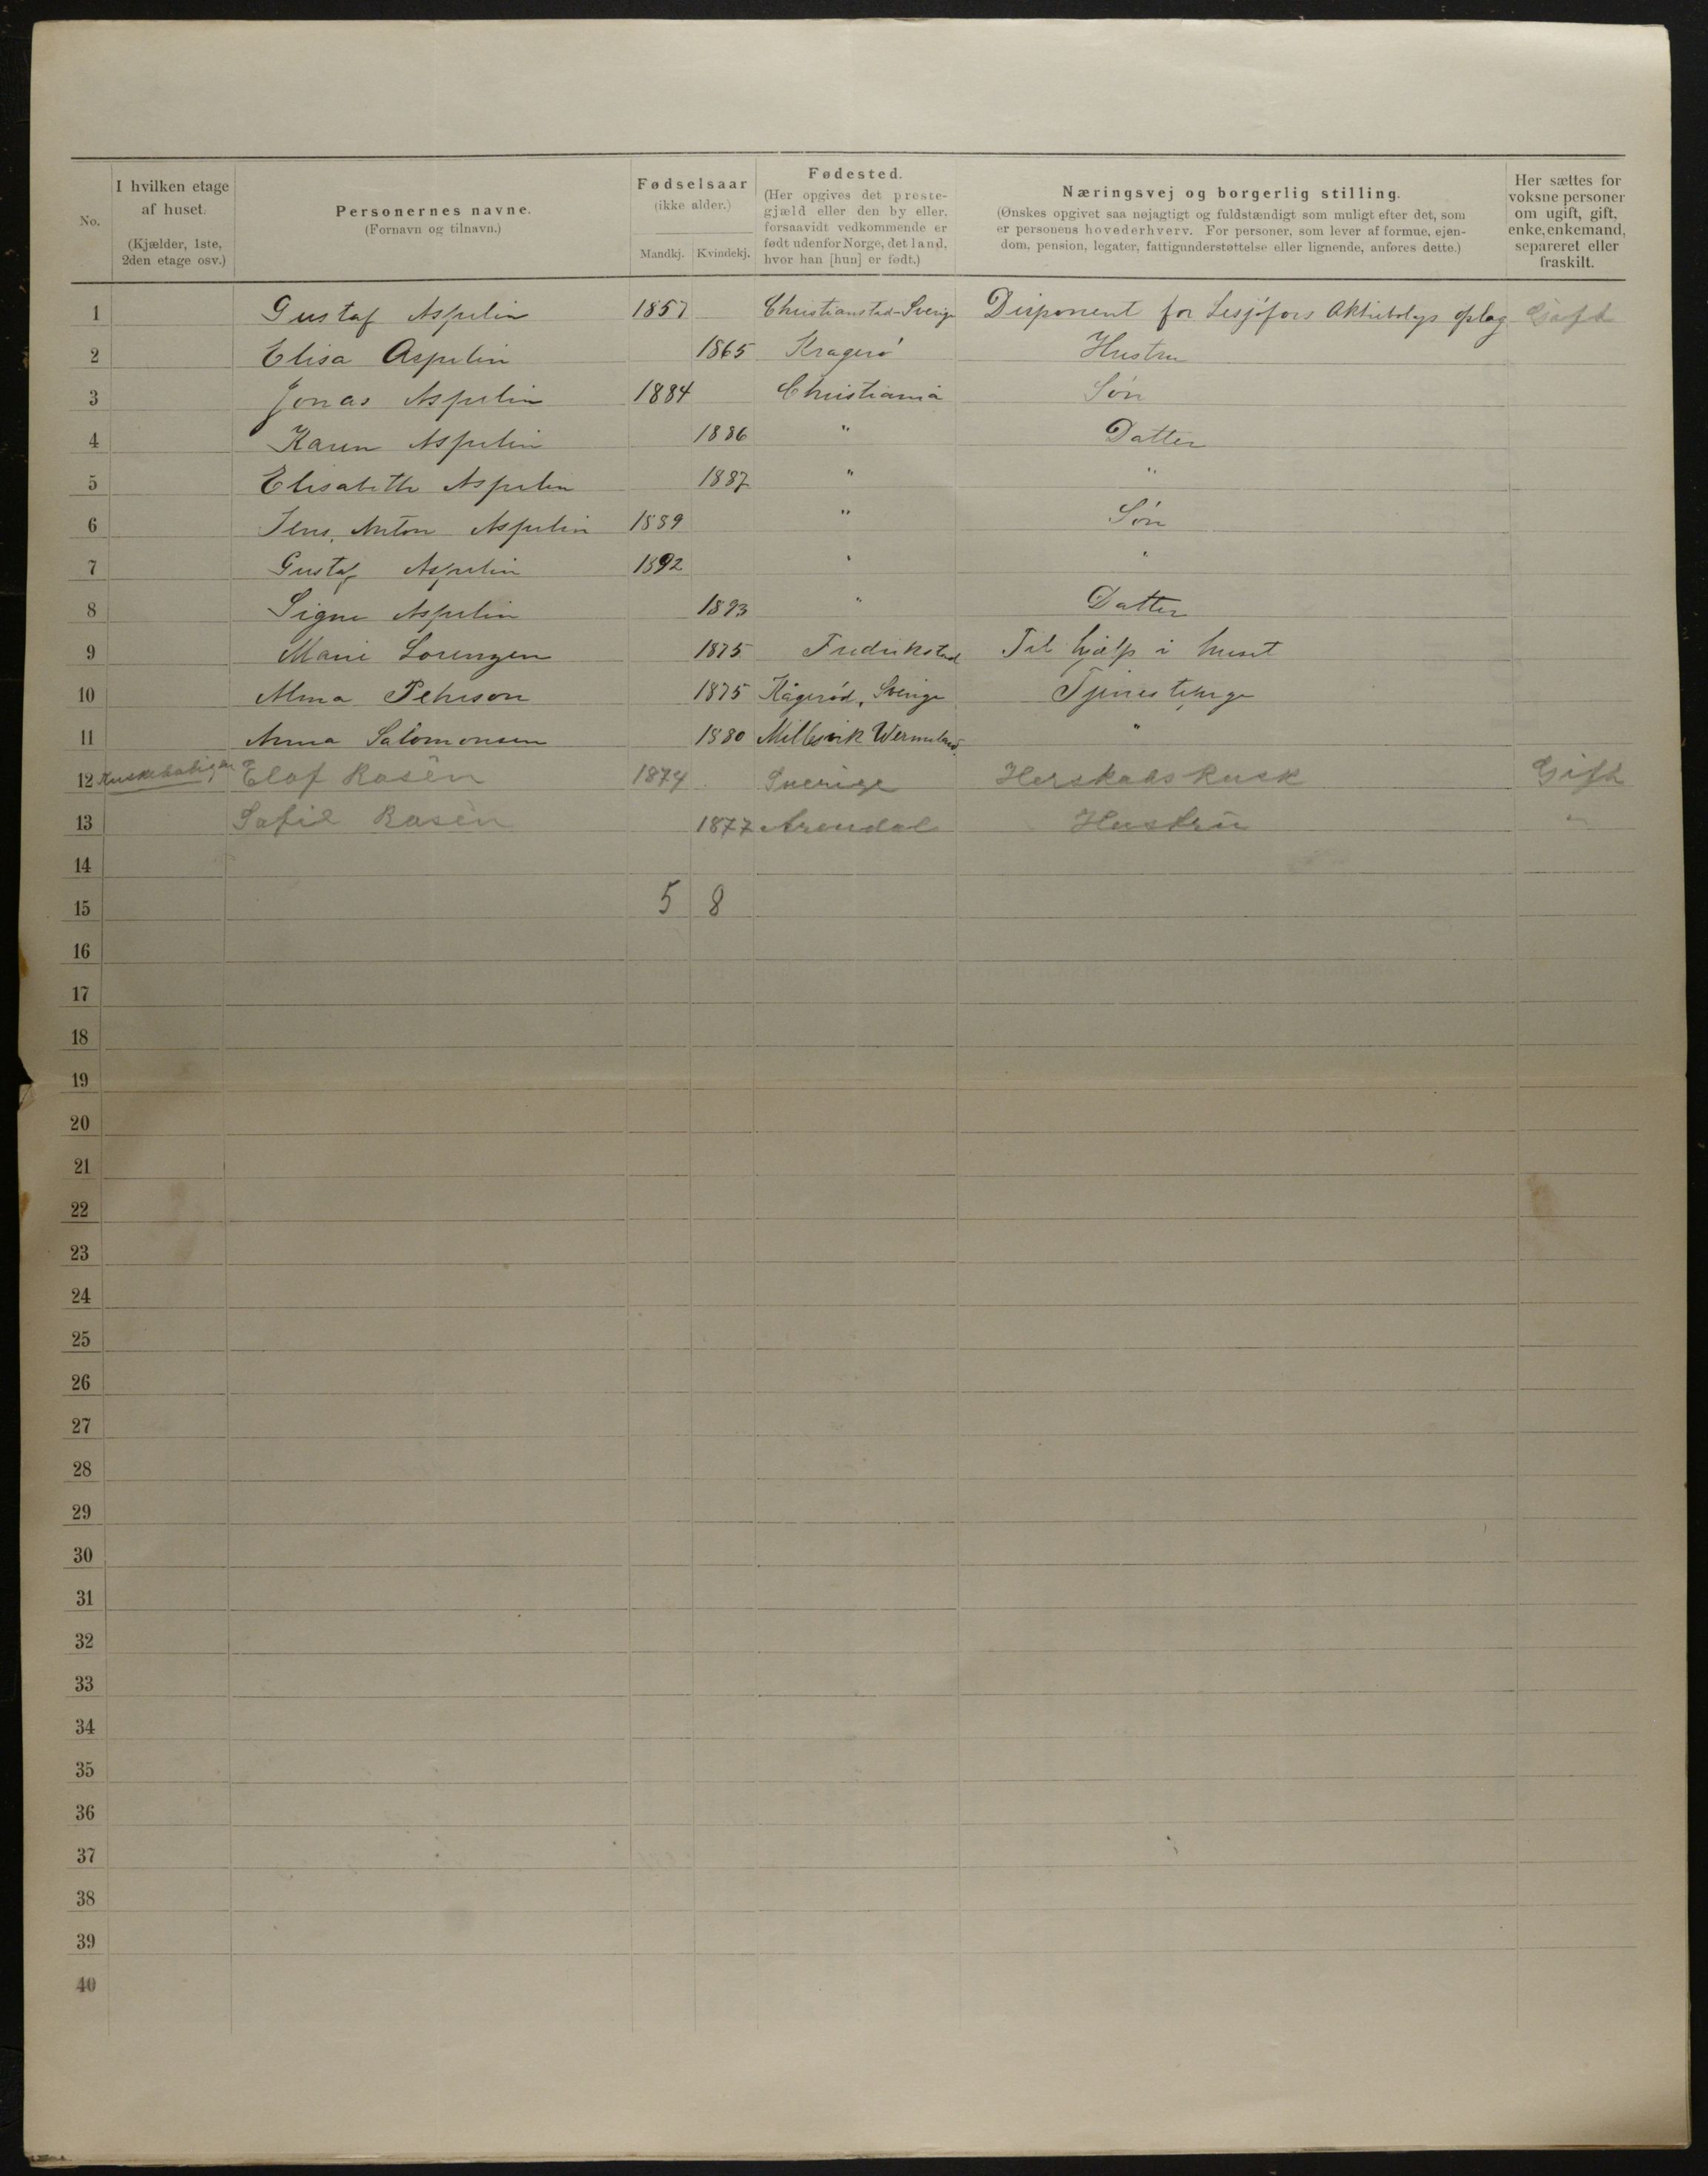 No.
I hvilken etage
af huset.
(Kjælder, 1ste,
2den etage osv.)
Personernes navne.
(Fornavn og tilnavn.)
Fødselsaar
(ikke alder.)
Mandkj. Kvindekj.
Fødested.
(Her opgives det preste-
gjæld eller den by eller,
forsaavidt vedkommende er
født udenfor Norge, det land,
hvor han [hun] er født.)
Næringsvej og borgerlig stilling.
(Ønskes opgivet saa nøjagtigt og fuldstændigt som muligt efter det, som
er personens hovederhverv. For personer, som lever af formue, ejen-
dom, pension, legater, fattigunderstøttelse eller lignende, anføres dette.)
Her sættes for
voksne personer
om ugift, gift,
enke, enkemand,
separeret eller
fraskilt.
1 Gustaf Aspelin 1857 Christianstad-Sverige Disponent for Lesjöfors Aktiebolags oplag Gift
2 Elisa Aspelin 1865 Kragerø Hustru
3 Jonas Aspelin 1884 Christiania Søn
4 Karen Aspelin 1886 " Datter
5 Elisabeth Aspelin 1887 " "
6 Jens Anton Aspelin 1889 " Søn
7 Gustaf Aspelin 1892 " "
8 Signe Aspelin 1893 " Datter
9 Marie Lorenzen 1875 Fredrikstad Til hjælp i huset
10 Alma Pehrson 1875 Kågeröd, Sverige
11 Anna Salomonsen 1880 Millesvik Wermeland "
12 Elof Rosèn 1874 Sverige Herskabs Kusk Gift
13 Sofie Rosèn 1877 Arendal Hustrü "
14
15 5 8
16
17
18
19
20
21
22
23
24
25
26
27
28
29
30
31
32
33
34
35
36
37
38
39
40